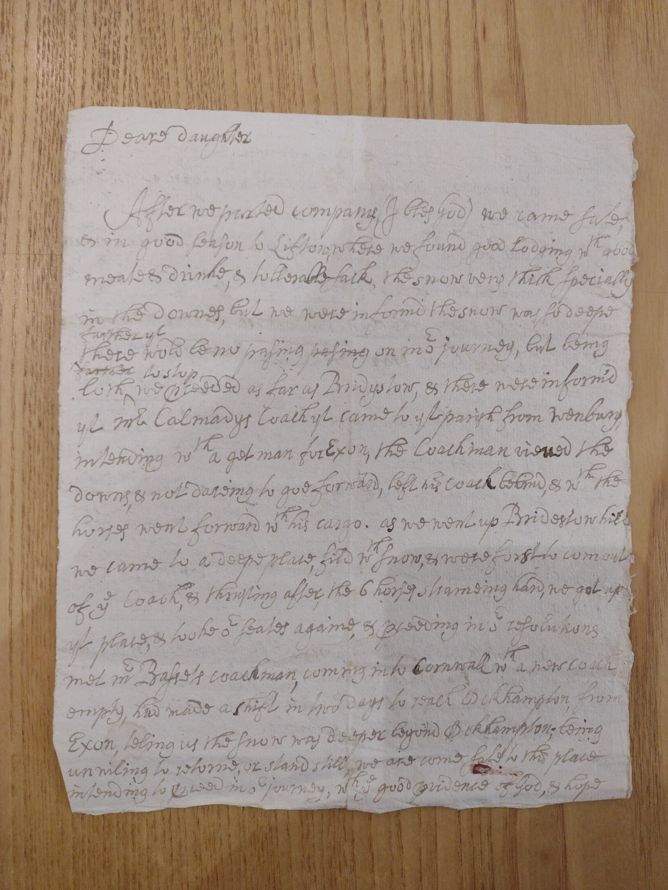 Deare daughter
After we parted company (I bles God) we came safe,
& in good season to Lifton, where we found good lodging wth good
meate & drinke, & tollerable sack, the snow very thick specially
in the downes, but we were informd the snow was so deepe
further yt
there wold be no pasing pasing on in or journey, but being
farther to stop
loth, we pceeded as far as Bridystow, & there were informd
yt mr Calmadys Coach yt came to yt parish from Wenbury,
intending wth a get man for Exon, the Coachman viewed the
downs, & not dareing to goe forward, left his coach behind, & wth the
horses went forward wth his cargo. as we went up Bridestow hill
we came to a deepe place fild wth snow, & were forst to com out
of ye Coach, & thrusting after, the 6 horses straineing hard, we got up
yt place, & tooke or seates againe, & pceeding in or resolutions
met mr Bassets coachman, coming into Cornwall wth a new coach
empty, had made a shift in two days to reach Ockhampton from
Exon, teling us the snow was deeper beyond Ockhampton; being
unwiling to retorne, or stand still, we are come safe to this place
intending to pceed in or journey, wth ye good pvidence of God, & hope